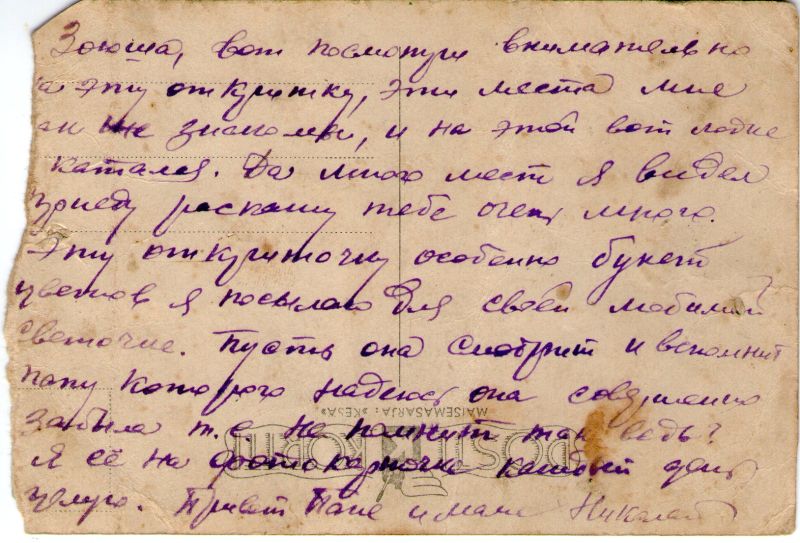 Зоюша, вот посмотри внимательно
на эту открытку, эти места мне
знакомы, и на этой вот лодке
катался. Да много мест я видел
приеду раскажу тебе очень много.
Эту открыточку особенно букет
цветов я посылаю для своей любимой
Светочке. Пусть она смотрит и вспомнит
папу которого надеюсь она совершенно
забыла т.е. не помнит так ведь?
Я её на фотокарточке каждый день
целую. Привет Папе и маме Николай
MAISEMASARJA: «KESÄ»
POSTIKORTTI